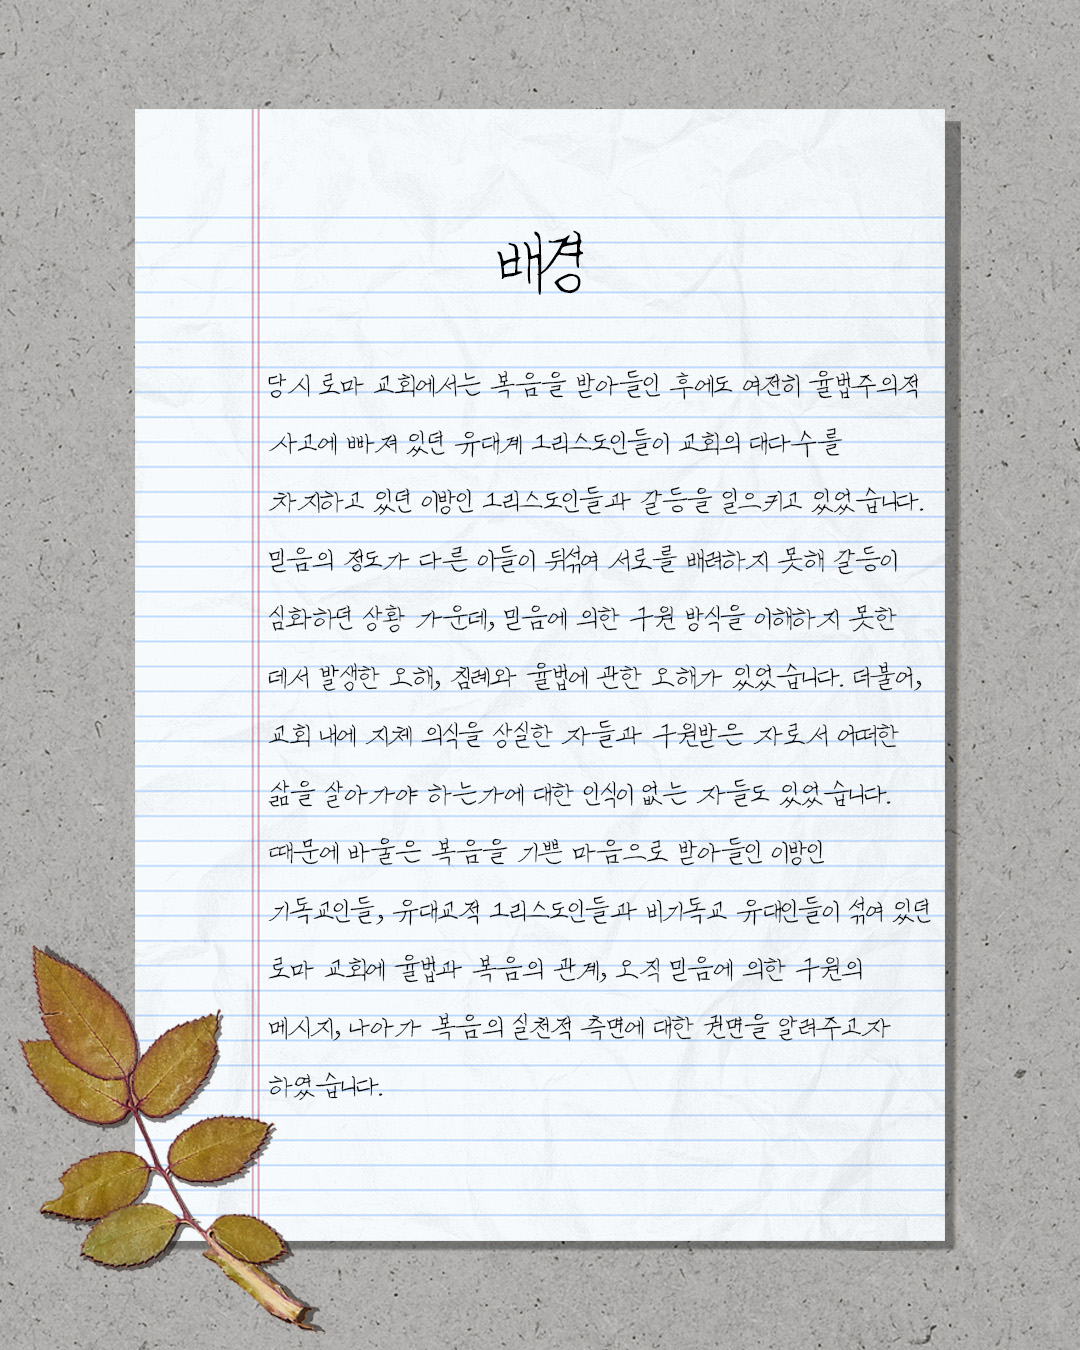 배경
당시 로마 교회에서는 복음을 받아들인 후에도 여전히 율법주의적
사고에 빠져 있던 유대계 그리스도인들이 교회의 대다수를
차지하고 있던 이방인 그리스도인들과 갈등을 일으키고 있었습니다.
믿음의 정도가 다른 이들이 뒤섞여 서로를 배려하지 못해 갈등이
심화하던 상황 가운데, 믿음에 의한 구원 방식을 이해하지 못한
데서 발생한 오해, 침례와 율법에 관한 오해가 있었습니다. 더불어,
교회 내에 지체 의식을 상실한 자들과 구원받은 자로서 어떠한
삶을 살아가야 하는가에 대한 인식이 없는 자들도 있었습니다.
때문에 바울은 복음을 기쁜 마음으로 받아들인 이방인
기독교인들, 유대교적 그리스도인들과 비기독교 유대인들이 섞여 있던
로마 교회에 율법과 복음의 관계, 오직 믿음에 의한 구원의
메시지, 나아가 복음의 실천적 측면에 대한 권면을 알려주고자
하였습니다.